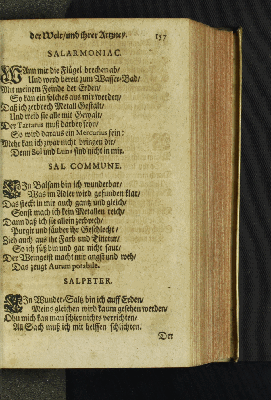 der Welt/ und ihrer Artzney. 157
SALARMONIAC.
WAnn mir die Flügel brechen ab/
Und werd bereit zum Wasser-Bad/
Mit meinem Feinde der Erden/
So kan ein solches aus mir werden/
Daß ich zerbrech Metall Gestalt/
Und treib sie alle mit Gewalt/
Der Tartarus muß darbey seyn/
So wird daraus ein Mercurius fein:
Mehr kan ich zwar nicht bringen
Denn Sol und Luna sind nicht in mir.
SAL COMMUNE.
EIn Balsam bin ich wunderbar/
Was im Adler wird gefunden klar/
Das steckt in mir auch gantz und gleich/
Sonst mach ich kein Metallen reich/
Dann daß ich sie allein zerbrech/
Purgir und säuber ihr Geschlecht/
Zieh auch aus ihr Farb und Tinctur/
So ich süß bin und gar nicht saur/
Der Weingeist macht mir angst und weh/
Das zeugt Aurum potabile.
SALPETER.
EIn Wunder-Saltz bin ich auff Erden/
Meins gleichen wird kaum gesehen werden/
Ohn mich kan man schier nichts verrichten/
All Sach muß ich mit helffen schlichten.
Der